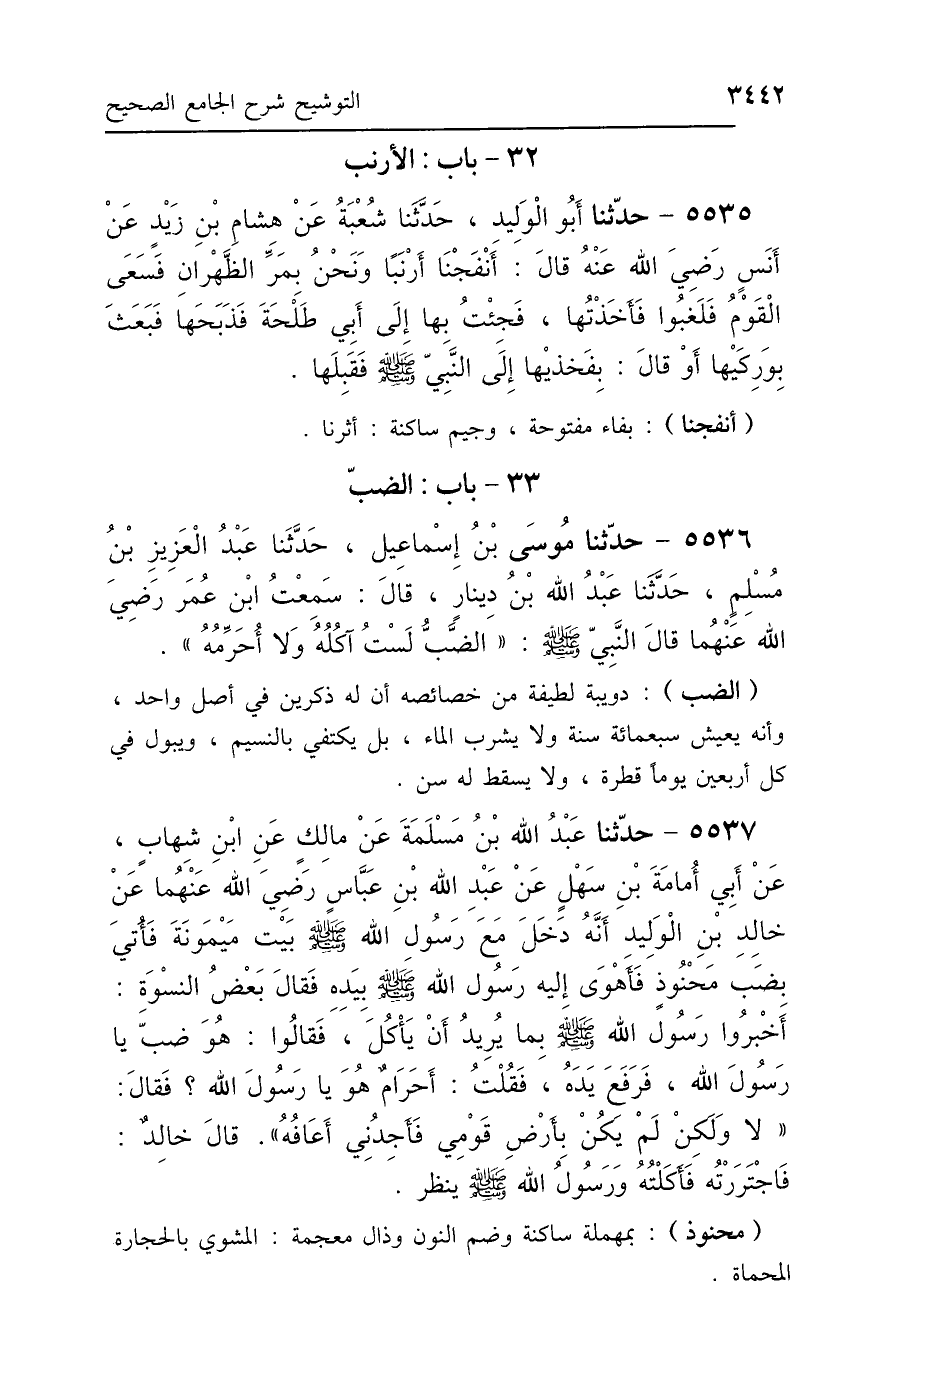 ٣٤٤٢
التوشيح شرح الجامع الصحيح
٣٢ - باب : الأرنب
٥٥٣٥ - حدّثنا أَبُو الْوَلِيدِ ، حَدَّثَنا شُعْبَةُ عَنْ هِشامِ بْنِ زَيْدٍ عَنْ
أَنَسٍ رَضِيَ الله عَنْهُ قالَ : أَنْفَجْنَا أَرْنَبًا وَنَحْنُ بِمَرِّ الظَّهْرانِ فَسَعَى
الْقَوْمُ فَلَغَبُوا فَأَخَذْتُها ، فَجِئْتُ بِها إِلَى أَبِي طَلْحَةَ فَذَبَحَها فَبَعَثَ
بِوَرِكَيْها أَوْ قالَ : بِفَخذيْها إِلَى النَّبِيّ ﷺ فَقَبِلَها .
( أنفجنا ) : بفاء مفتوحة ، وجيم ساكنة : أثرنا .
٣٣ - باب : الضبّ
٥٥٣٦ - حدّثنا مُوسَى بْنُ إِسْماعِيل ، حَدَّثَنا عَبْدُ الْعَزِيزِ بْنُ
مُسْلِمٍ ، حَدَّثَنا عَبْدُ الله بْنُ دِينارٍ ، قالَ : سَمِعْتُ ابْن عُمَر رَضِيَ
الله عَنْهُما قالَ النَّبِيّ ﷺ : « الضَّبُّ لَسْتُ آكُلُهُ وَلا أُحَرِّمُهُ » .
( الضب ) : دويبة لطيفة من خصائصه أن له ذكرين في أصل واحد ،
وأنه يعيش سبعمائة سنة ولا يشرب الماء ، بل يكتفي بالنسيم ، ويبول في
كل أربعين يوماً قطرة ، ولا يسقط له سن .
٥٥٣٧ - حدّثنا عَبْدُ الله بْنُ مَسْلَمَةَ عَنْ مالِكٍ عَنِ ابْنِ شِهابٍ ،
عَنْ أَبِي أُمامَةَ بْنِ سَهْلٍ عَنْ عَبْدِ الله بْنِ عَبَّاسٍ رَضِيَ الله عَنْهُما عَنْ
خالِدِ بْنِ الْوَلِيدِ أَنَّهُ دَخَلَ مَعَ رَسُولِ الله ﷺ بَيْت مَيْمَونَةَ فَأُتِيَ
بِضَب مَحْنُوذٍ فَأَهْوَى إِليه رَسُول الله ﷺ بِيَدِهِ فَقالَ بَعْضُ النسْوَةِ :
أَخْبِرُوا رَسُولَ الله ﷺ بِما يُرِيدُ أَنْ يَأْكُلَ ، فَقالُوا : هُوَ ضبّ يا
رَسُولَ الله ، فَرَفَعَ يَدَهُ ، فَقُلْتُ : أَحَرَامٌ هُوَ يا رَسُولَ الله ؟ فَقالَ:
« لا وَلَكِنْ لَمْ يَكُنْ بِأَرْضِ قَوْمِي فَأَجِدُنِي أَعَافُهُ». قالَ خالِدٌ :
فَاجْتَرَرْتُه فَأَكَلْتُهُ وَرَسُولُ الله ﷺ ينظر .
( محنوذ ) : بمهملة ساكنة وضم النون وذال معجمة : المشوي بالحجارة
المحماة .